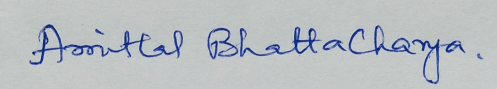 Amitlal Bhattacharya.